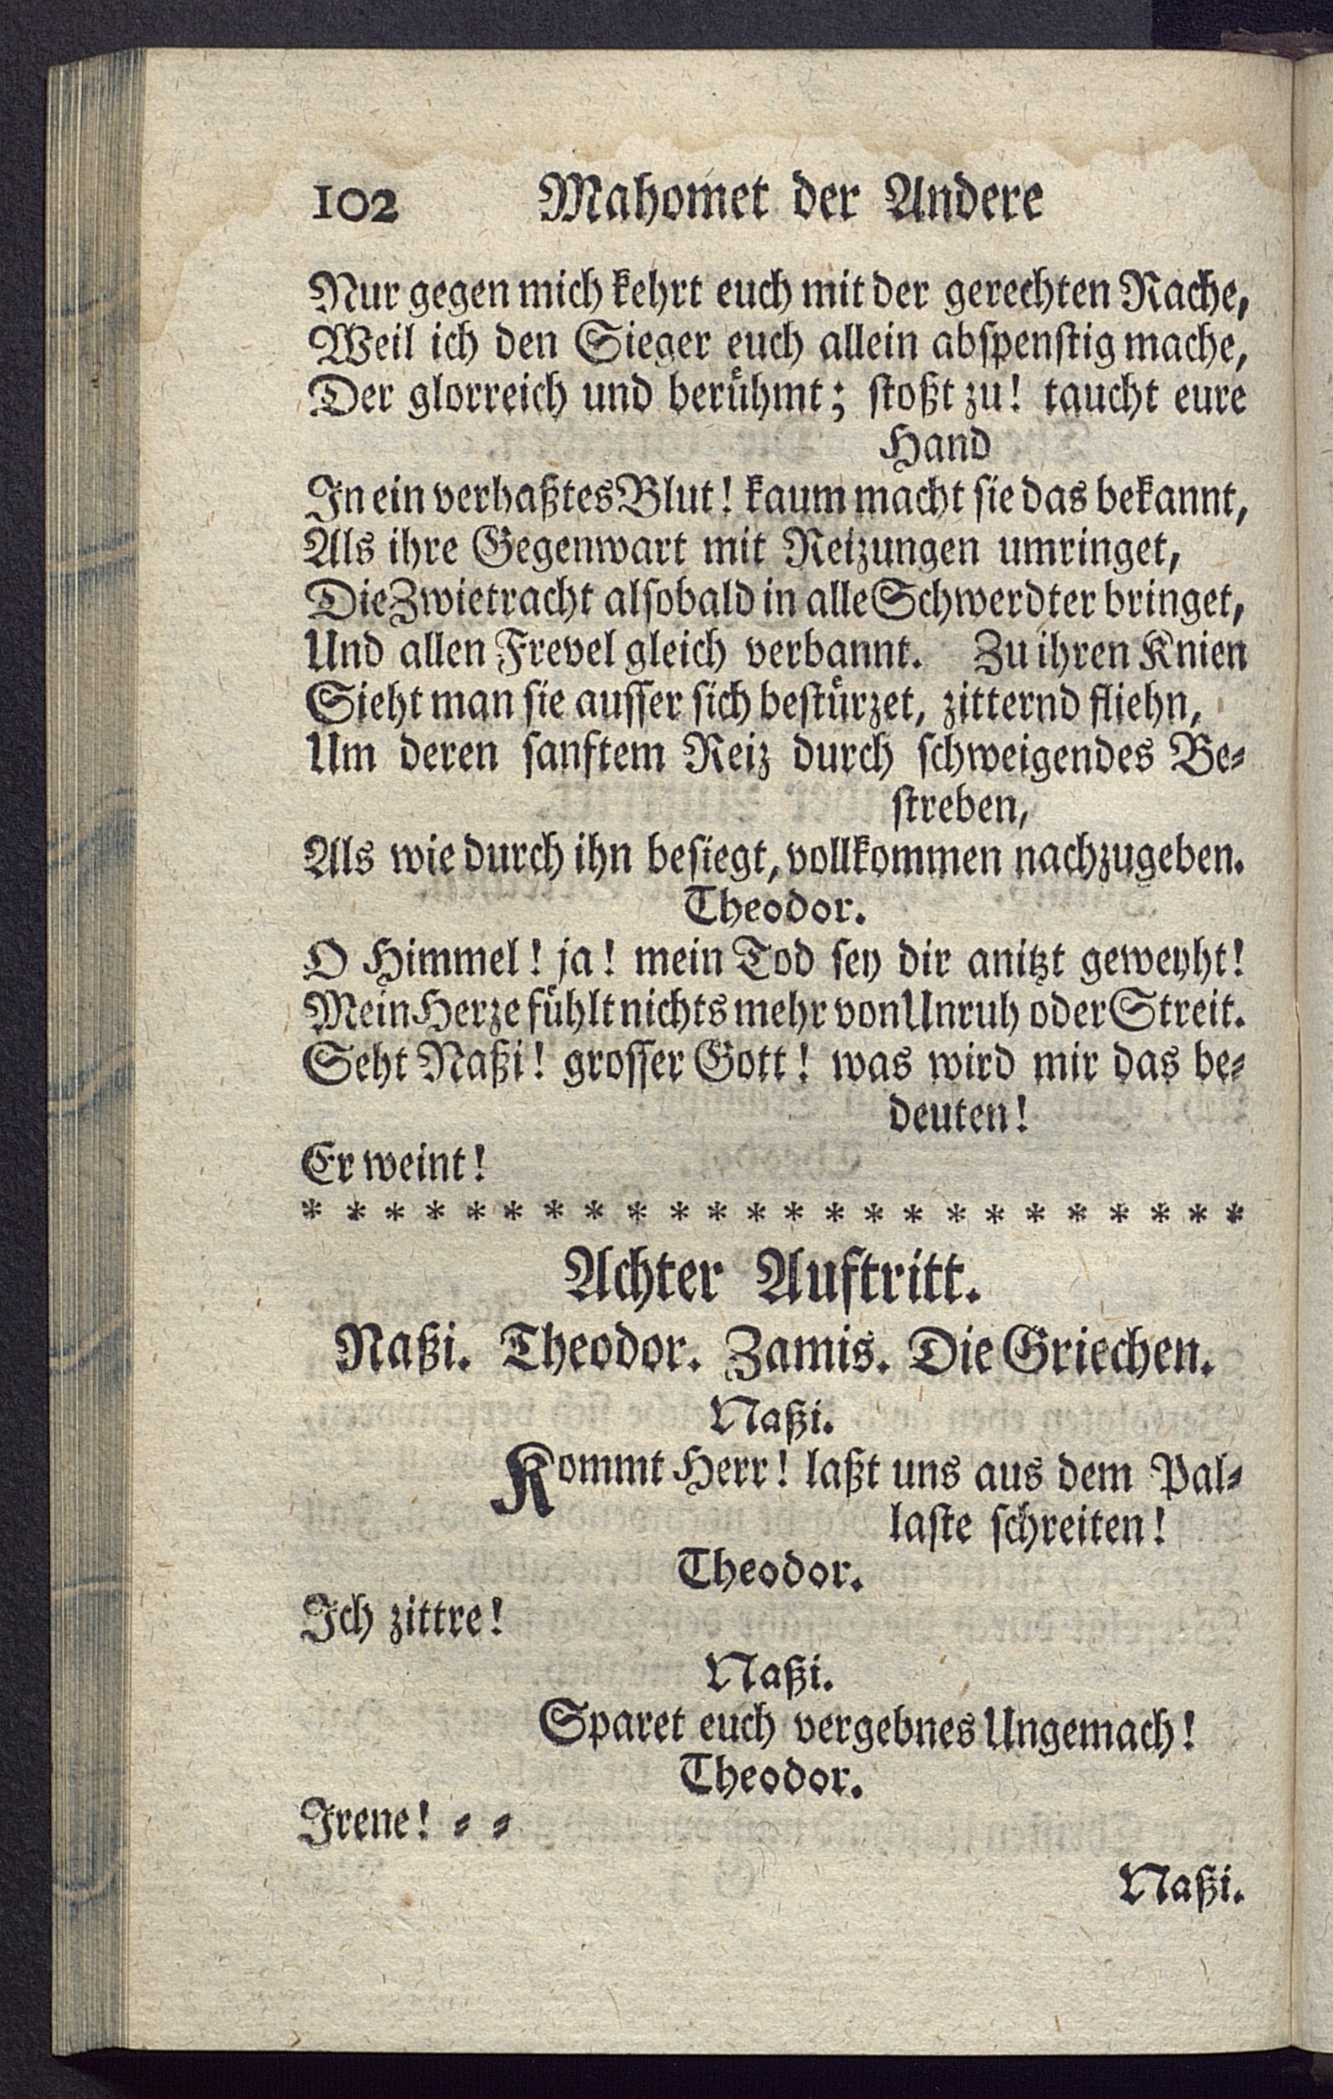 102 Mahomet der Andere
Nur gegen mich kehrt euch mit der gerechten Rache,
Weil ich den Sieger euch allein abspenstig mache,
Der glorreich und berühmt; stoßt zu! taucht eure
Hand
In ein verhaßtes Blut! kaum macht sie das bekannt,
Als ihre Gegenwart mit Reizungen umringet,
Die Zwietracht alsobald in alle Schwerdter bringet,
Und allen Frevel gleich verbannt. Zu ihren Knien
Sieht man sie ausser sich bestürzet, zitternd fliehn,
Um deren sanftem Reiz durch schweigendes Be-
streben,
Als wie durch ihn besiegt, vollkommen nachzugeben.
Theodor.
O Himmel! ja! mein Tod sey dir anitzt geweyht!
Mein Herze fühlt nichts mehr von Unruh oder Streit.
Seht Naßi! grosser Gott! was wird mir das be-
deuten!
Er weint!
* * * * * * * * * * * * * * * * * * * * * * * *
Achter Auftritt.
Naßi. Theodor. Zamis. Die Griechen.
Naßi.
Kommt Herr! laßt uns aus dem Pal-
laste schreiten!
Theodor.
Ich zittre!
Naßi.
Sparet euch vergebnes Ungemach!
Theodor.
Irene! - -
Naßi.